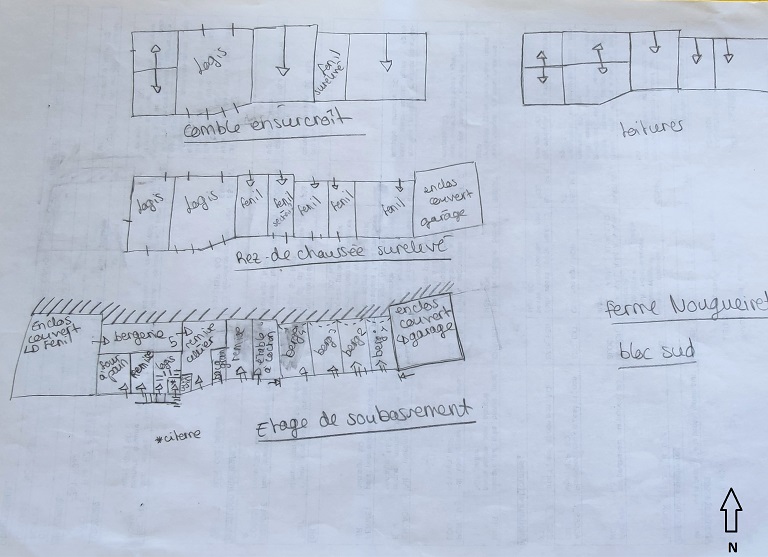 Logis
fenil
surelevé
Comble en surcroît
toitures
Logis
Logis
fenil
fenil
fenil
fenil
fenil
enclos
couvert
garage
Rez-de chaussée surelevé
Enclos
couvert
LD Fenil
bergerie
5
four
à
pain
Remise
logis
remise
atelier
remise
étable
à cochon
berg.
berg.
berg.
berg.
enclos
couvert
garage
*citerne
Etage de soubassement
Ferme Nougueiret
bloc sud
N